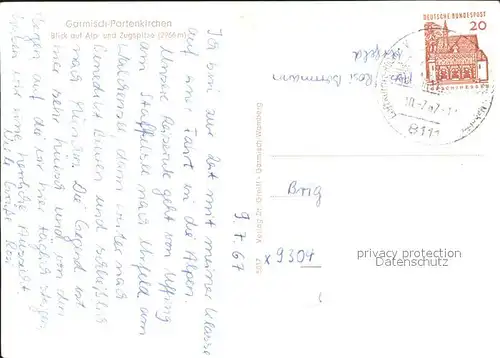 Garmisch-Partenkirchen
Blick auf Alp- und Zugspitze (2966 m)
Ich bin zur Zeit mit meiner Klasse
auf einer Fahrt in die Alpen.
Unsere Reiseroute geht von Uffing
am Staffelsee nach Urfeld am
Walchensee dann weiter nach
Benedikt Beuern und schließlich
nach Die Gegend ist
hier sehr hübsch und von den
Bergen auf die wir hier täglich steigen,
haben wir eine herrliche Aussicht.
Viele Grüße Rosi
9.7.67
DEUTSCHE BUNDESPOST
20
LORSCH/HESSEN
8111
Urfeld
Rosi
Brig
x 9304
privacy protection
Datenschutz